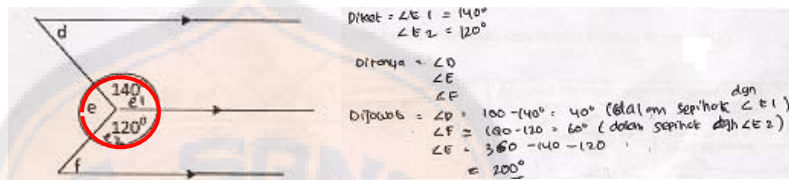 d
140
e e1
120°
e2
f
Diket = ∠E 1 = 140°
∠E 2 = 120°
Ditanya = ∠D
∠E
∠F
dgn
Dijawab = ∠D = 180 - 140° = 40° (dalam sepihak ∠E1)
∠F = 180 - 120 = 60° (dalam sepihak dgn ∠E2)
∠E = 360 - 140 - 120
= 200°